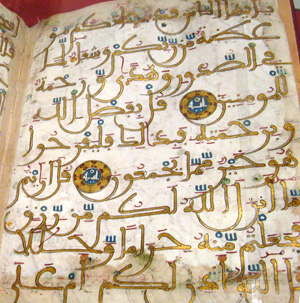 يأيها الناس قد جاءتكم مو
عظة من ربكم وشفاء لما
في الصدور وهدى ورحمة
للمومنين قل بفضل الله
وبرحمته فبذلك فليفرحوا
هو خير مما يجمعون قل اريتم
ما انزل الله لكم من رزق
فجعلتم منه حراما وحللا
قل الله اذن لكم ام على